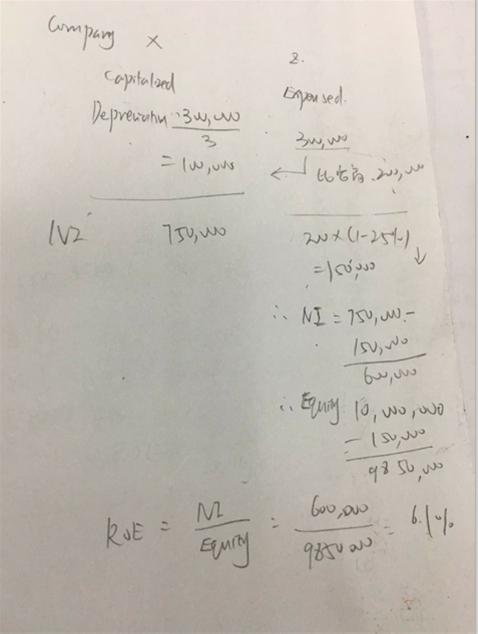 Company X Z.
Capitalized Expensed.
Depreciation 300,000 / 3 300,000
= 100,000 ← 比右高 200,000
NI 750,000 200 × (1-25%) ↓
= 150,000
∴ NI = 750,000 -
150,000
600,000
∴ Equity 10,000,000
- 150,000
9850,000
ROE = NI / Equity = 600,000 / 9850 000 = 6.1%